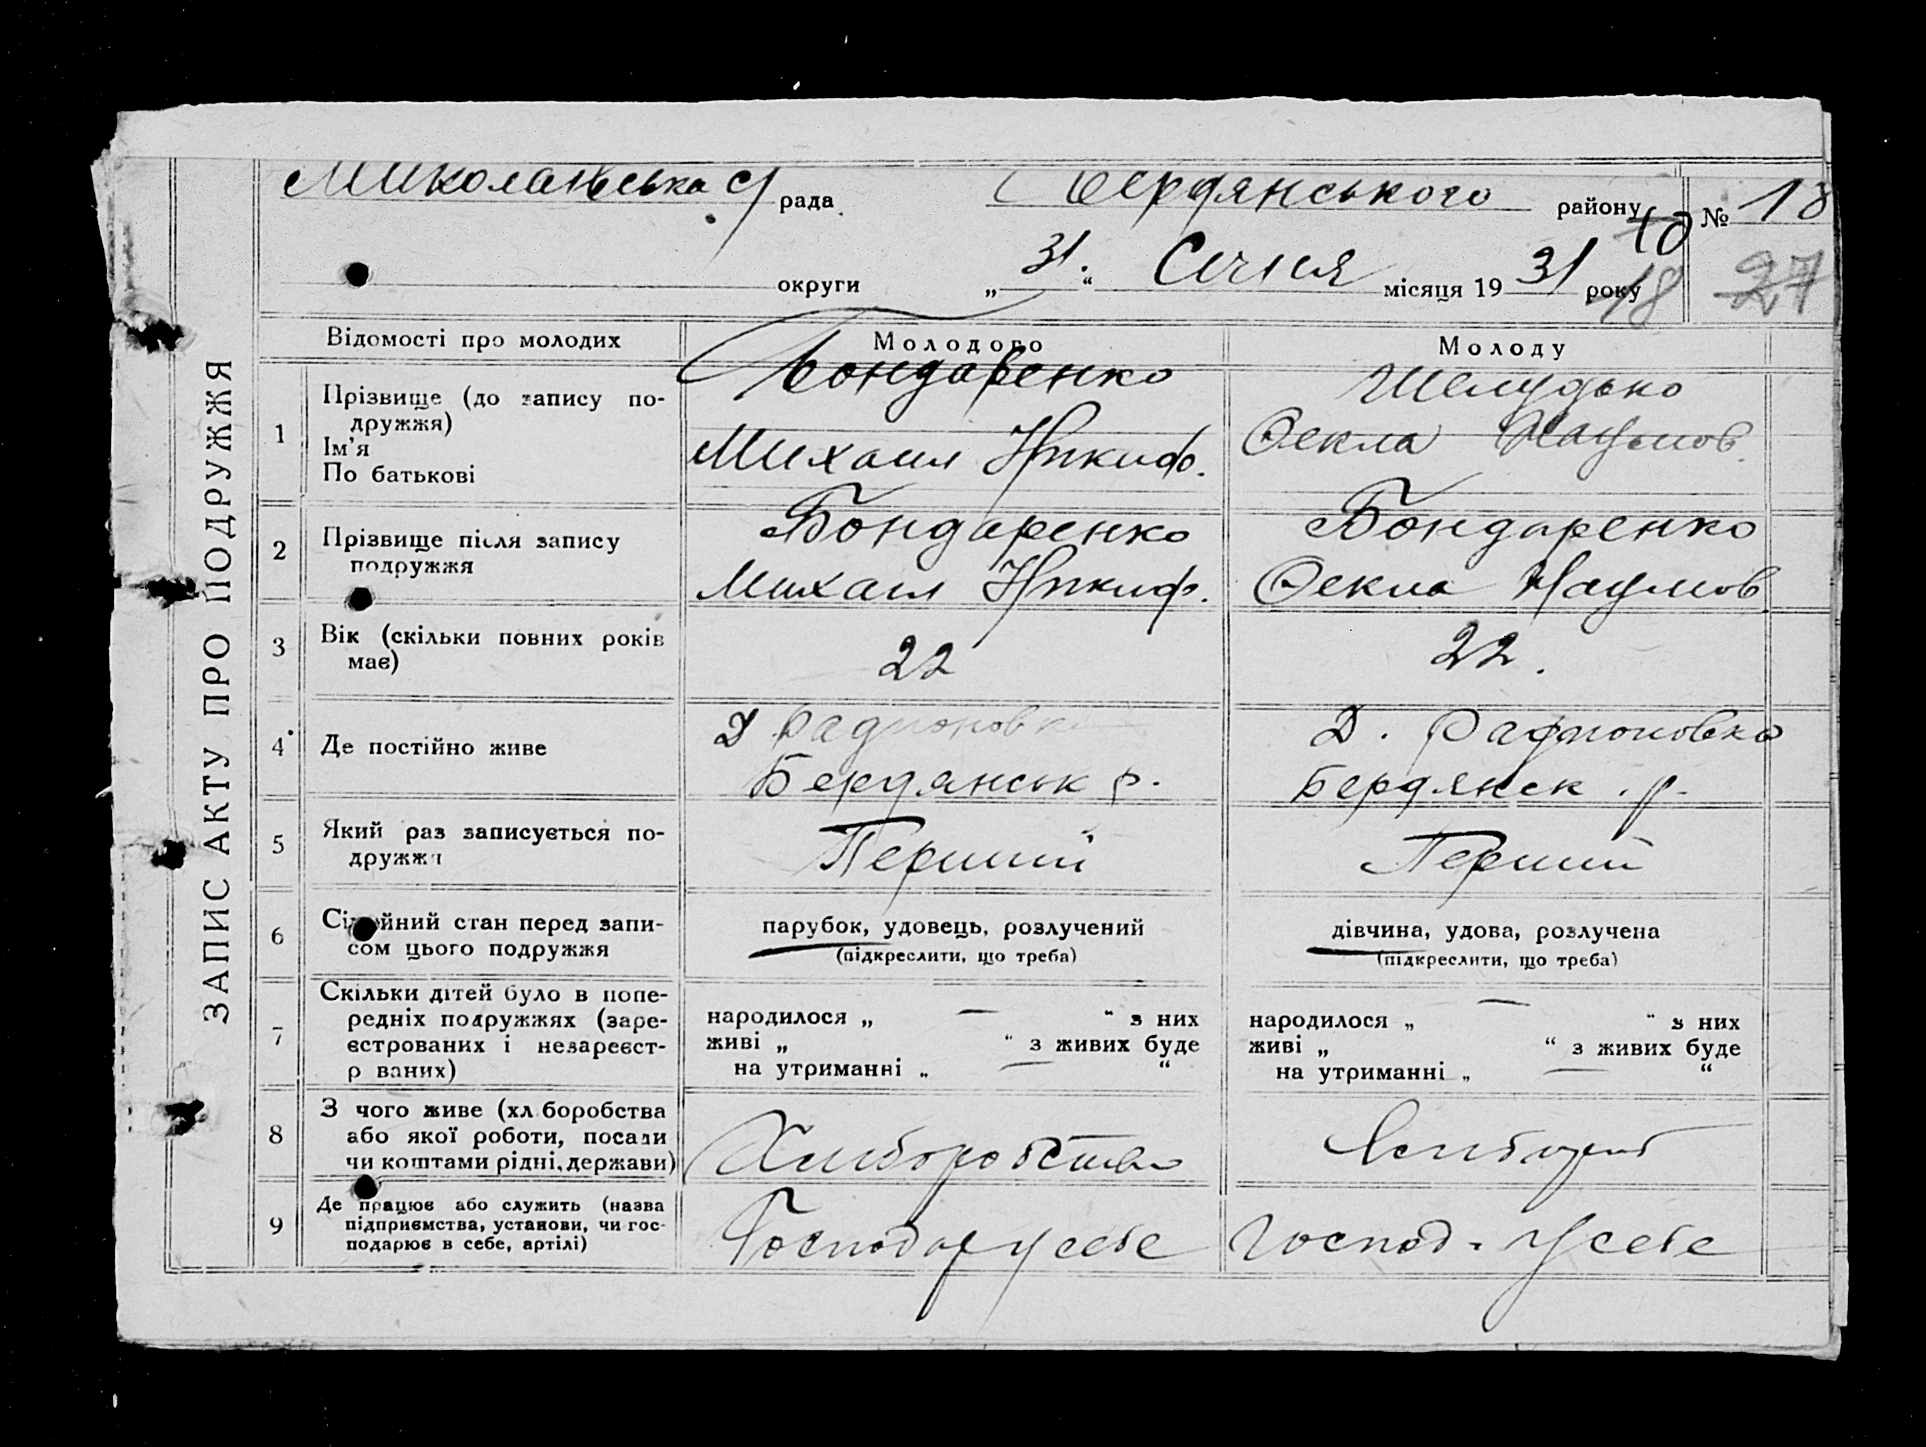 ЗАПИС АКТУ ПРО ПОДРУЖЖЯ
Миколаївська с/рада Бердянського району № 18
10
округи „31.“ Січня місяця 1931 року
18 27
Відомості про молодих Молодого Молоду
1 Прізвище (до запису по-
дружжя)
Ім’я
По батькові
Бондаренко
Михаил Никиф.
Шелудько
Фекла Наумов.
2 Прізвище після запису
подружжя
Бондаренко
Михаил Никиф.
Бондаренко
Фекла Наумов
3 Вік (скільки повних років
має)
22
22.
4 Де постійно живе
Д. Радионовка
Бердянськ р.
Д. Радионовка
Бердянск. р.
5 Який раз записується по-
дружжя
Перший
Перший
6 Сімейний стан перед запи-
сом цього подружжя
парубок, удовець, розлучений
(підкреслити, що треба)
дівчина, удова, розлучена
(підкреслити, що треба)
7 Скільки дітей було в попе-
редніх подружжях (заре-
єстрованих і незареєст-
р ваних)
народилося „ — “ з них
живі „ “ з живих буде
на утриманні „ — “
народилося „ — “ з них
живі „ “ з живих буде
на утриманні „ — “
8 З чого живе (хл боробства
або якої роботи, посади
чи коштами рідні, держави)
Хлиборобство
9 Де працює або служить (назва
підприємства, установи, чи гос-
подарює в себе, артілі)
Господар у себе
Господ. у себе